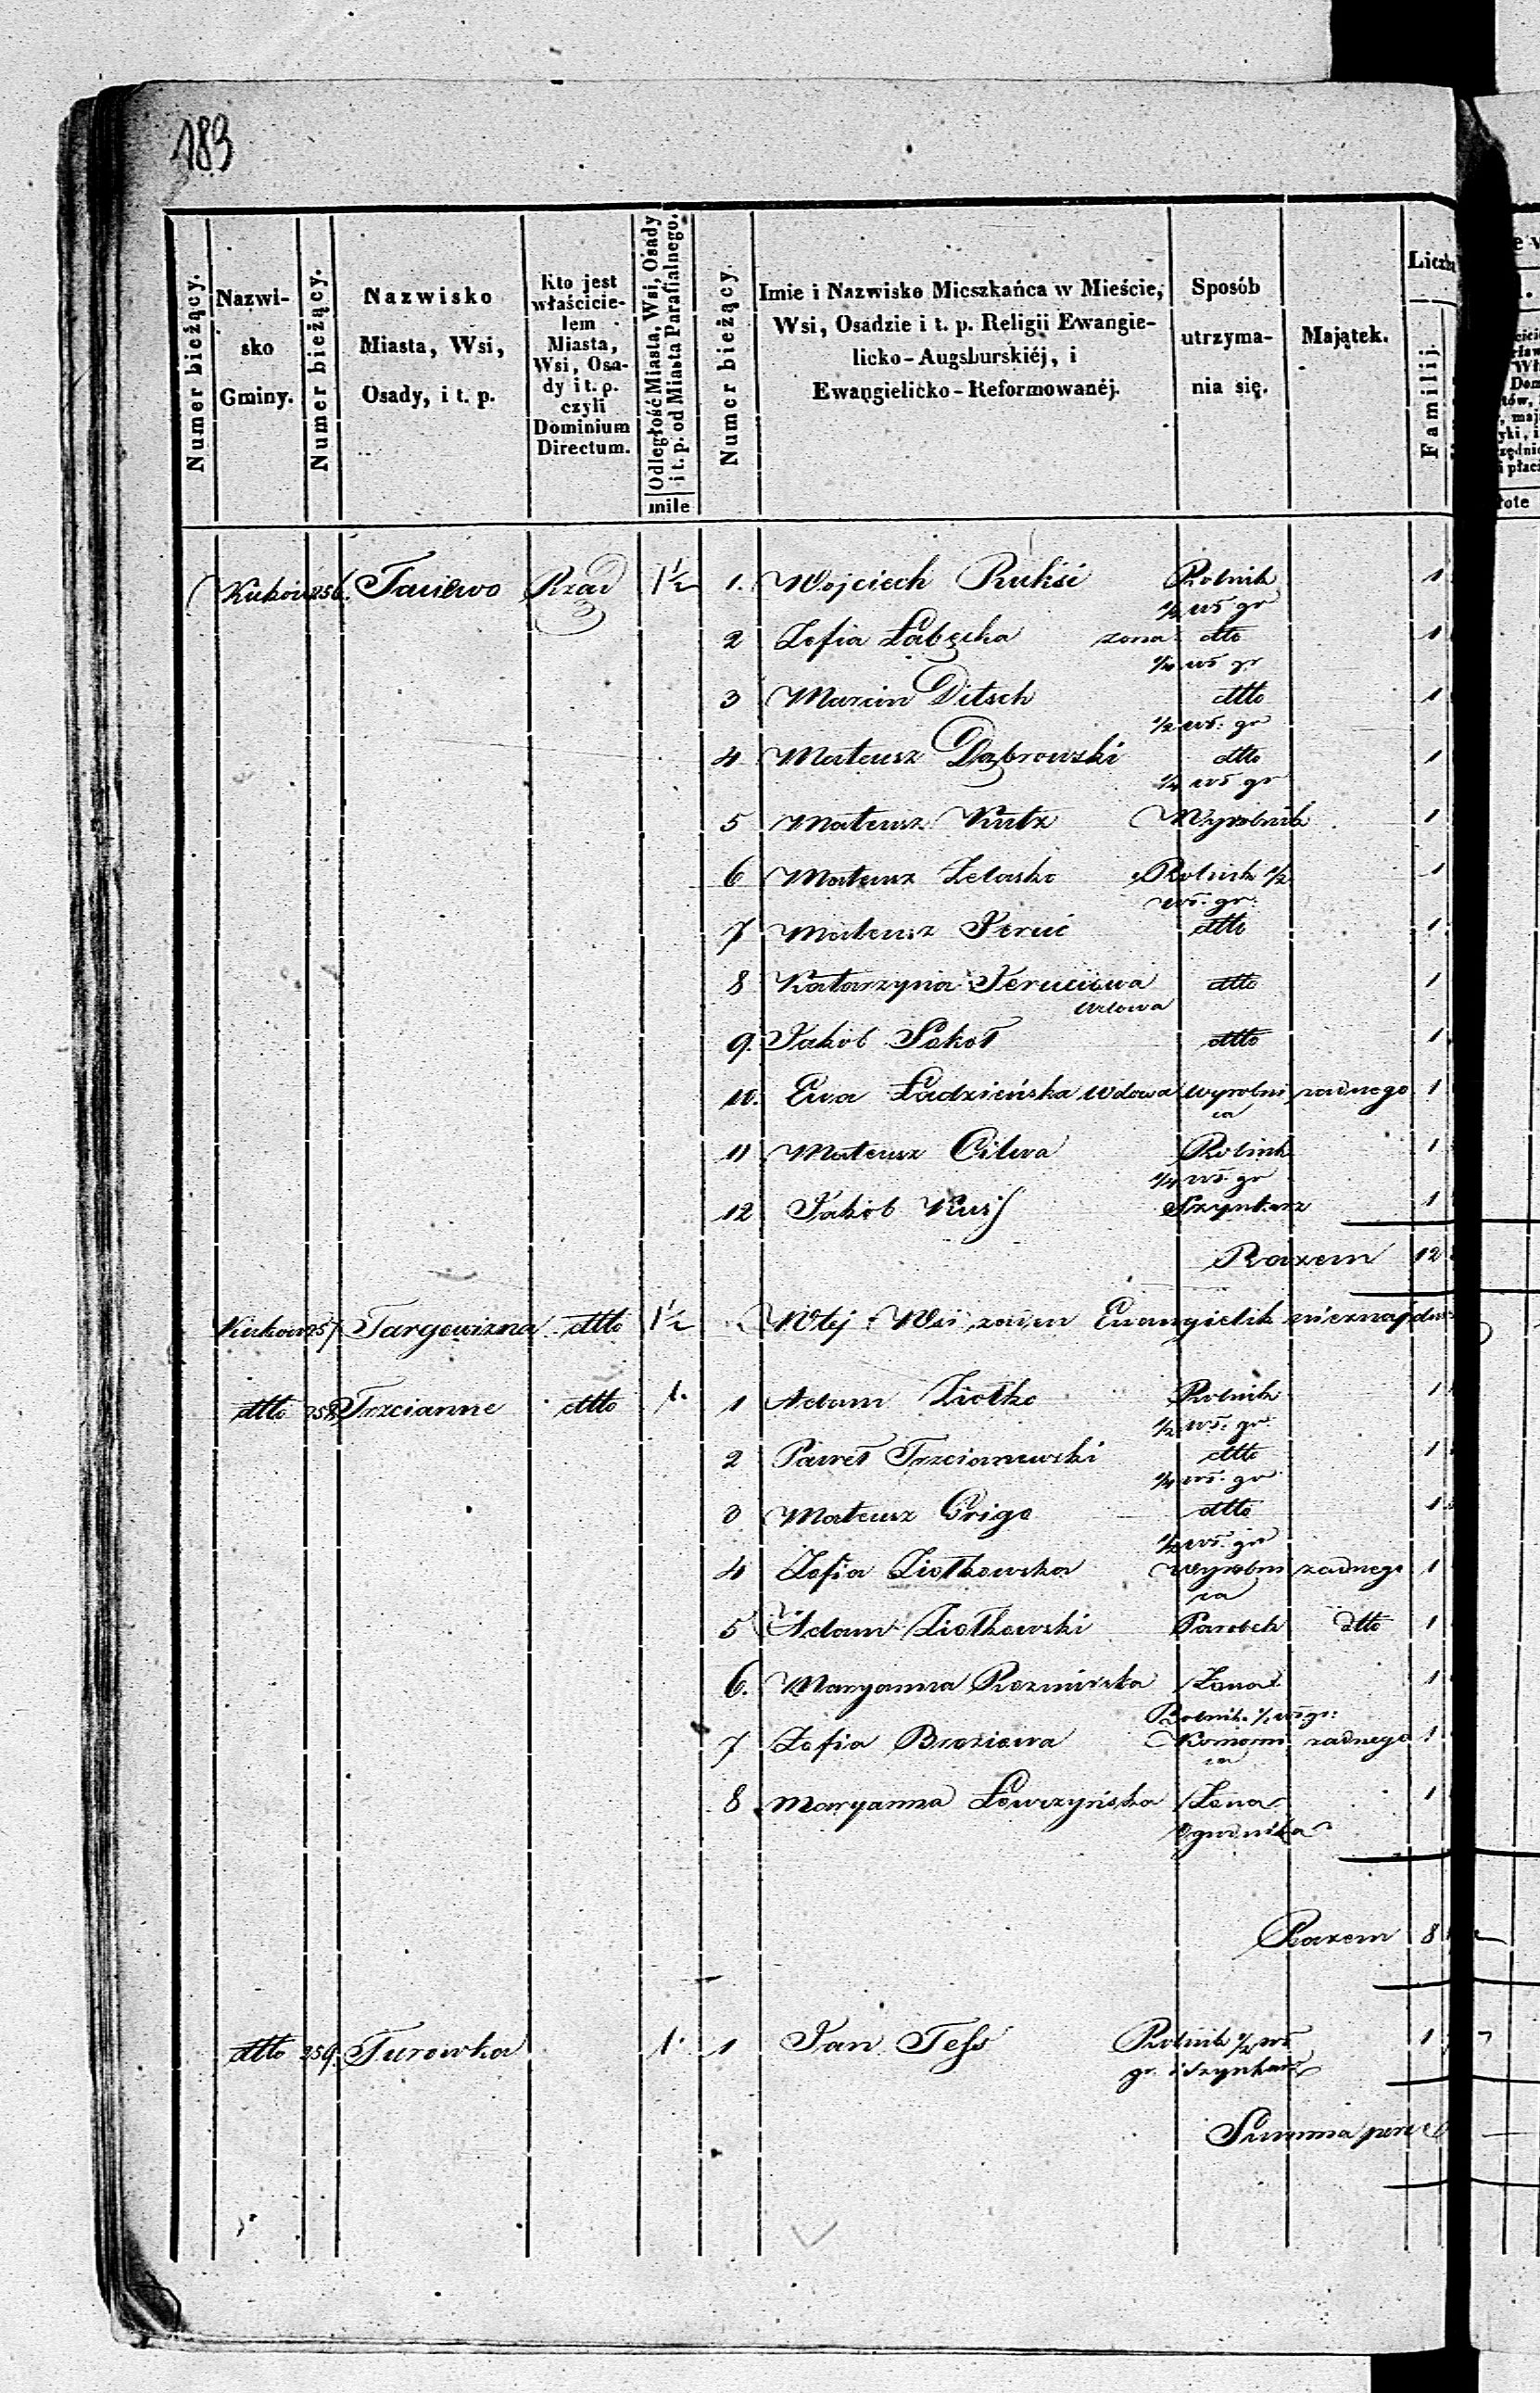 183
Numer bieżący.
Nazwi-
sko
Gminy.
Numer bieżący.
Nazwisko
Miasta, Wsi,
Osady, i t. p.
Kto jest
właścicie-
lem
Miasta,
Wsi, Osa-
dy i t. p.
czyli
Dominium
Directum.
Odległość Miasta, Wsi, Osady
i t. p. od Miasta Parafialnego.
mile
Numer bieżący.
Imie i Nazwisko Mieszkańca w Mieście,
Wsi, Osadzie i t. p. Religii Ewangie-
licko-Augsburskiéj, i
Ewangielicko-Reformowanéj.
Sposób
utrzyma-
nia się.
Majątek.
Familij.
256. Taciewo Rząd 1½ 1. Wojciech Rukść Rolnik 1
½ wł gr
2 Zofia Łabęcka żona dtto 1
¼ wł gr
3 Marcin Ditsch dtto 1
½ wł. gr
4 Mateusz Dąbrowski dtto 1
¼ wł gr
5 Mateusz Kutz Wyrobnik 1
6 Mateusz Zelasko Rolnik ½ 1
wł. gr.
7 Mateusz Peruć dtto 1
8 Katarzyna Peruciowa dtto 1
wdowa
9. Jakob Sokoł dtto 1
10. Ewa Ładzieńska wdowa wyrobni żadnego 1
ca
11 Mateusz Cilwa Rolnik 1
¼ wł. gr
12 Jakob Kuiſ Szynkarz 1
Razem 12
257 Targowizna dtto 1½ W tej Wsi żaden Ewangielik nieznajdu
dtto 258 Trzcianne dtto 1. 1 Adam Ziołko Rolnik 1
½ wł. gr.
2 Paweł Trzcianowski dtto 1
¼ wł. gr
3 Mateusz Grigo dtto 1
½ wł. gr
4 Zofia Ziołkowska wyrobni żadnego 1
ca
5 Adam Ziołkowski Parobek dtto 1
6. Maryanna Rozmirska Żona 1
Rolnik. ½ wł. gr:
7 Zofia Broziowa Komorni żadnego 1
ca
8 Maryanna Łowczyńska Żona 1
Ogrodnika
Razem 8
dtto 259. Turowka 1. 1 Jan Teſs Rolnik ½ wł 1
gr. i szynkarz
Summa